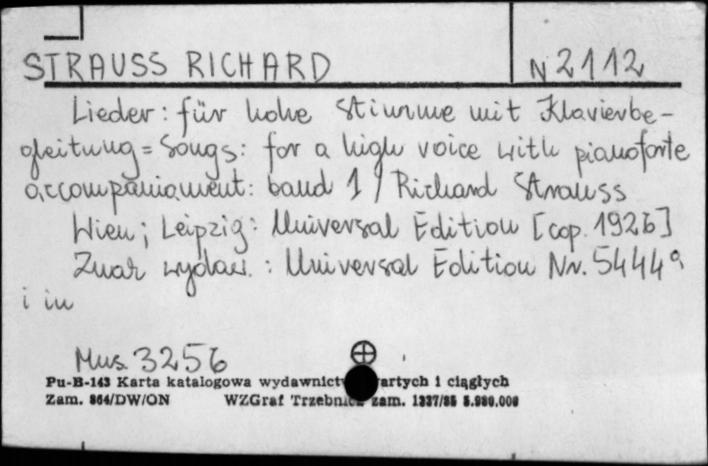 STRAUSS RICHARD N 2112
Lieder : für hohe Stimme mit Klavierbe-
gleitung = Songs : for a high voice with pianoforte
accompaniament : band 1 / Richard Strauss
Wien ; Leipzig : Universal Edition [cop. 1926]
Znak wydaw. : Universal Edition Nr. 5444a
i in
Mus. 3256
Pu-B-143 Karta katalogowa wydawnict artych i ciągłych
Zam. 864/DW/ON WZGraf Trzebnica zam. 1337/85 5.980.000